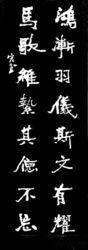 鴻漸羽儀斯文有耀
馬歌維縶其德不忘